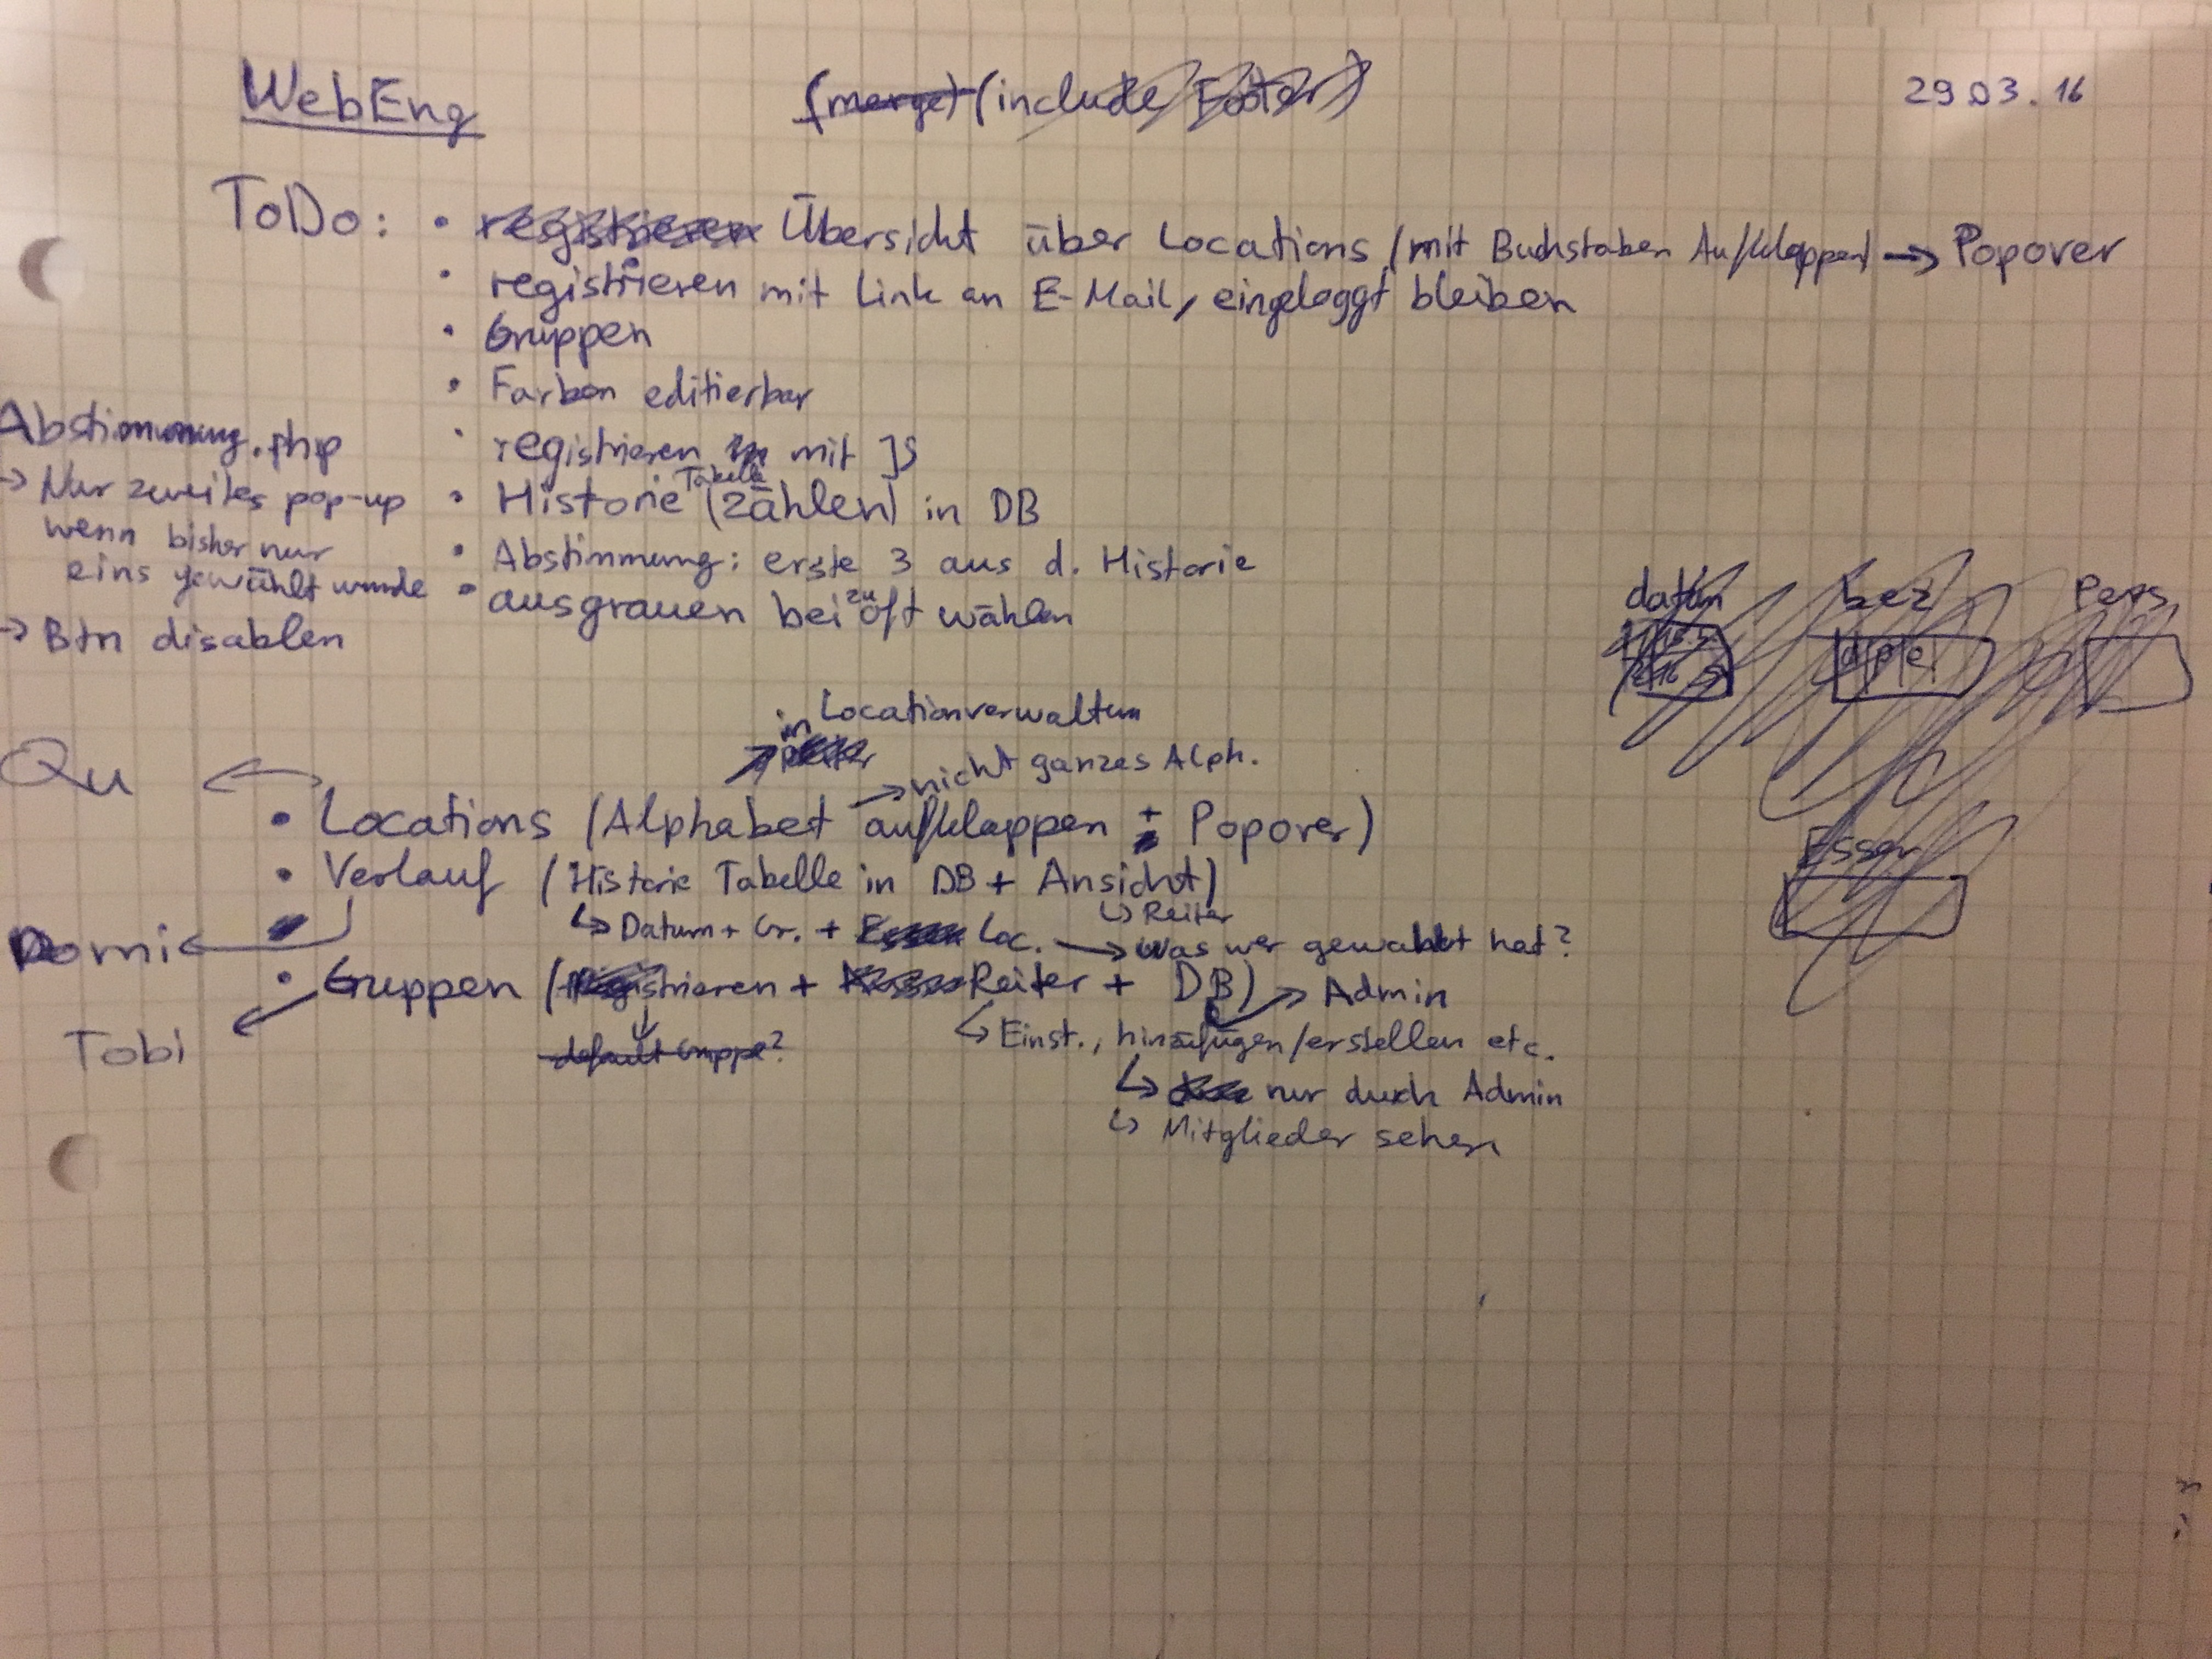 WebEng (merge) (include Footer) 29.03.16
ToDo: • registrieren Übersicht über Locations (mit Buchstaben Aufklappen) → Popover
• registrieren mit Link an E-Mail, eingeloggt bleiben
• Gruppen
• Farben editierbar
• registrieren mit JS
• Historie Tabelle (zählen) in DB
• Abstimmung: erste 3 aus d. Historie
• ausgrauen bei zu oft wählen
Abstimmung.php
→ Nur zweites pop-up
wenn bisher nur
eins gewählt wurde
→ Btn disablen
datum bez Pers
Essen
in Locationverwaltun
→ nicht ganzes Alph.
Qu ←
• Locations (Alphabet aufklappen + Popover)
• Verlauf (Historie Tabelle in DB + Ansicht)
↳ Reiter
Domi ←
↳ Datum + Gr. + Essen Loc. → Was wer gewählt hat?
• Gruppen (Registrieren + Reiter + DB) → Admin
Tobi
↓
default Gruppe?
↳ Einst., hinzufügen/erstellen etc.
↳ nur durch Admin
↳ Mitglieder sehen